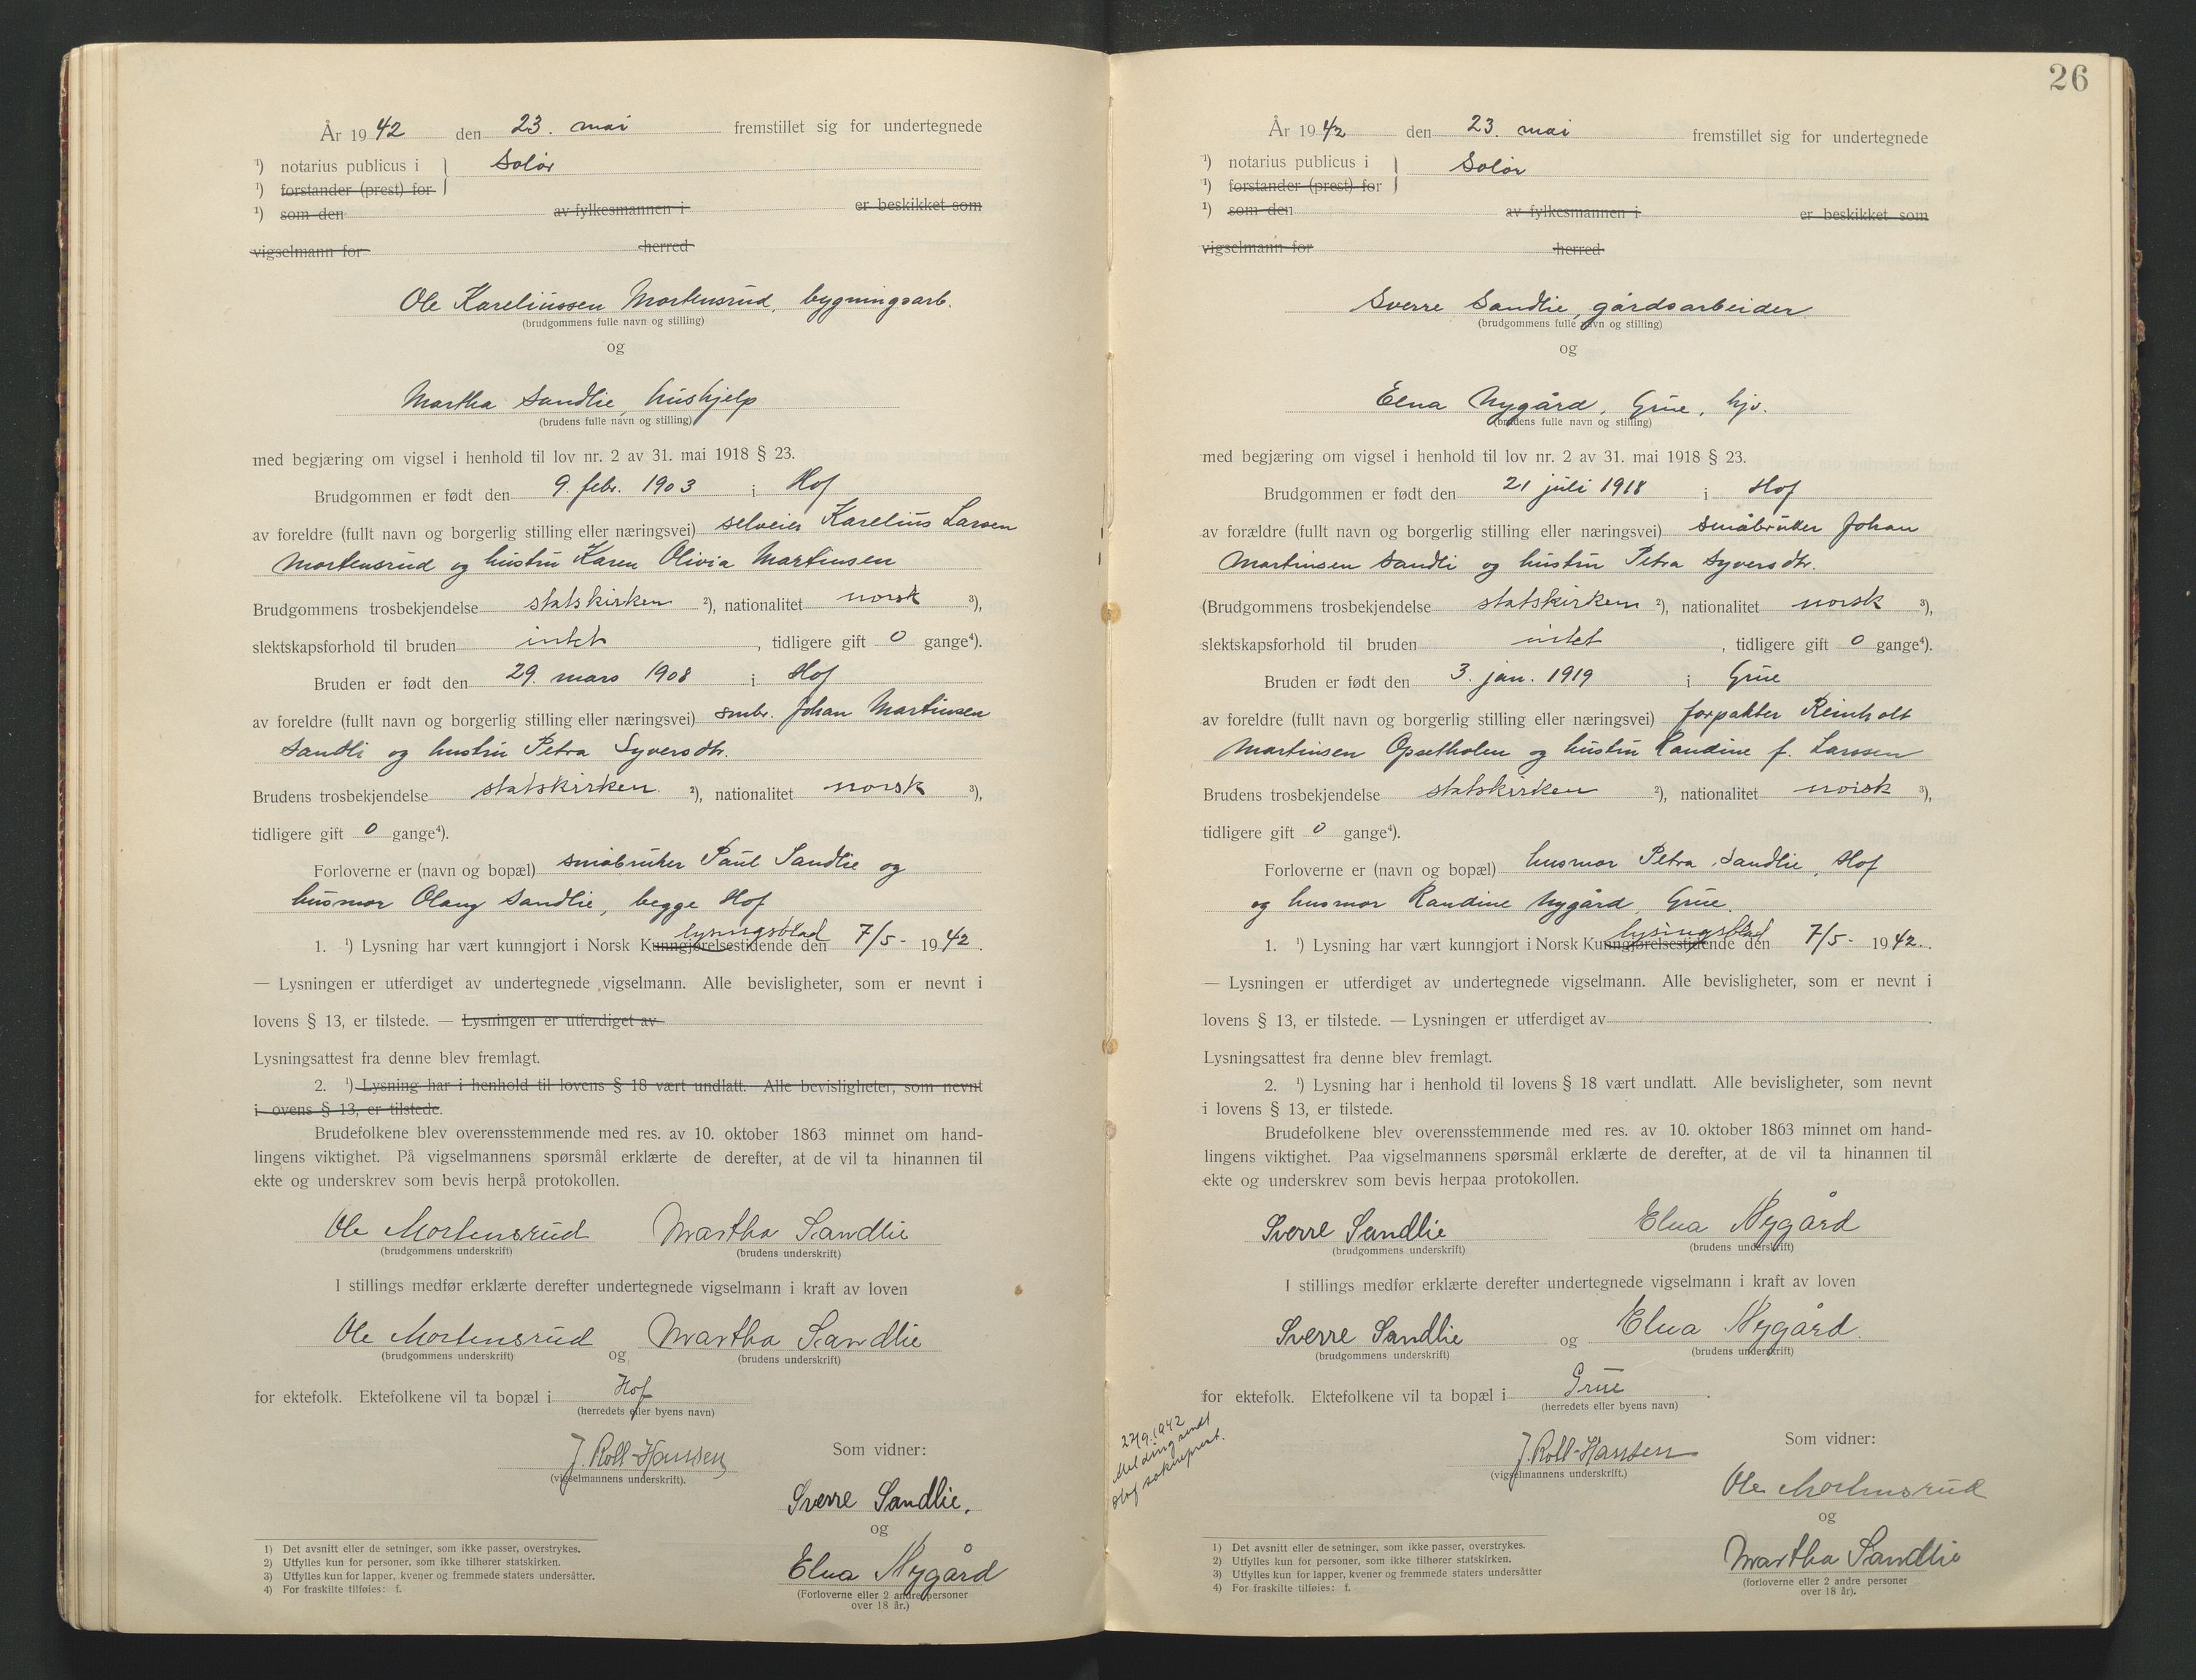 År 1942 den 23. mai fremstillet sig for undertegnede
¹) notarius publicus i } Solør
¹) forstander (prest) for
¹) som den av fylkesmannen i er beskikket som
vigselmann for herred
Ole Kareliussen Mortensrud, bygningsarb.
(brudgommens fulle navn og stilling)
og
Martha Sandlie, hushjelp
(brudens fulle navn og stilling)
med begjæring om vigsel i henhold til lov nr. 2 av 31. mai 1918 § 23.
Brudgommen er født den 9. febr. 1903 i Hof
av foreldre (fullt navn og borgerlig stilling eller næringsvei) selveier Karelius Larsen
Mortensrud og hustru Karen Olivia Martinsen
Brudgommens trosbekjendelse statskirken ²), nationalitet norsk ³),
slektskapsforhold til bruden intet, tidligere gift 0 gange⁴).
Bruden er født den 29. mars 1908 i Hof
av foreldre (fullt navn og borgerlig stilling eller næringsvei) smbr. Johan Martinsen
Sandli og hustru Petra Syversdtr.
Brudens trosbekjendelse statskirken. ²), nationalitet norsk ³),
tidligere gift 0 gange⁴).
Forloverne er (navn og bopæl) småbruker Paul Sandlie og
husmor Olaug Sandlie, begge Hof
lysningsblad
1. ¹) Lysning har vært kunngjort i Norsk Kunngjørelsestidende den 7/5- 1942.
— Lysningen er utferdiget av undertegnede vigselmann. Alle bevisligheter, som er nevnt i
lovens § 13, er tilstede. — Lysningen er utferdiget av
Lysningsattest fra denne blev fremlagt.
2. ¹) Lysning har i henhold til lovens § 18 vært undlatt. Alle bevisligheter, som nevnt
i ovens § 13, er tilstede.
Brudefolkene blev overensstemmende med res. av 10. oktober 1863 minnet om hand-
lingens viktighet. På vigselmannens spørsmål erklærte de derefter, at de vil ta hinannen til
ekte og underskrev som bevis herpå protokollen.
Ole Mortensrud Martha Sandlie
(brudgommens underskrift) (brudens underskrift)
I stillings medfør erklærte derefter undertegnede vigselmann i kraft av loven
Ole Mortensrud og Martha Sandlie
(brudgommens underskrift) (brudens underskrift)
for ektefolk. Ektefolkene vil ta bopæl i Hof
(herredets eller byens navn)
J. Roll-Hansen
(vigselmannens underskrift).
Som vidner:
Sverre Sandlie.
og
Elna Nygård
(Forloverne eller 2 andre personer
over 18 år.)
1) Det avsnitt eller de setninger, som ikke passer, overstrykes.
2) Utfylles kun for personer, som ikke tilhører statskirken.
3) Utfylles kun for lapper, kvener og fremmede staters undersåtter.
4) For fraskilte tilføies: f.
26
År 1942 den 23. mai fremstillet sig for undertegnede
¹) notarius publicus i } Solør
¹) forstander (prest) for
¹) som den av fylkesmannen i er beskikket som
vigselmann for herred
Sverre Sandlie, gårdsarbeider
(brudgommens fulle navn og stilling)
og
Elna Nygård, Grue, hjv.
(brudens fulle navn og stilling)
med begjæring om vigsel i henhold til lov nr. 2 av 31. mai 1918 § 23.
Brudgommen er født den 21 juli 1918 i Hof
av forældre (fullt navn og borgerlig stilling eller næringsvei) småbruker Johan
Martinsen Sandli og hustru Petra Syversdtr.
(Brudgommens trosbekjendelse statskirken ²), nationalitet norsk ³),
slektskapsforhold til bruden intet, tidligere gift 0 gange⁴).
Bruden er født den 3. jan. 1919 i Grue
av foreldre (fullt navn og borgerlig stilling eller næringsvei) forpakter Reinholt
Martinsen Opsetholen og hustru Randine f. Larssen
Brudens trosbekjendelse statskirken ²), nationalitet norsk ³),
tidligere gift 0 gange⁴).
Forloverne er (navn og bopæl) husmor Petra Sandlie, Hof
og husmor Randine Nygård, Grue.
lysingsblad
1. ¹) Lysning har vært kunngjort i Norsk Kunngjørelsestidende den 7/5- 1942.
— Lysningen er utferdiget av undertegnede vigselmann. Alle bevisligheter, som er nevnt i
lovens § 13, er tilstede. — Lysningen er utferdiget av
Lysningsattest fra denne blev fremlagt.
2. ¹) Lysning har i henhold til lovens § 18 vært undlatt. Alle bevisligheter, som nevnt
i lovens § 13, er tilstede.
Brudefolkene blev overensstemmende med res. av 10. oktober 1863 minnet om hand-
lingens viktighet. Paa vigselmannens spørsmål erklærte de derefter, at de vil ta hinannen til
ekte og underskrev som bevis herpaa protokollen.
Sverre Sandlie Elna Nygård
(brudgommens underskrift) (brudens underskrift)
I stillings medfør erklærte derefter undertegnede vigselmann i kraft av loven
Sverre Sandlie og Elna Nygård.
(brudgommens underskrift) (brudens underskrift)
for ektefolk. Ektefolkene vil ta bopæl i Grue.
(herredets eller byens navn)
27/9.1942
Melding sendt
Hof sokneprest.
J. Roll-Hansen
(vigselmannens underskrift.)
Som vidner:
Ole Mortensrud
og
Martha Sandlie
(forloverne eller 2 andre personer
over 18 år).
1) Det avsnitt eller de setninger, som ikke passer, overstrykes.
2) Utfylles kun for personer, som ikke tilhører statskirken.
3) Utfylles kun for lapper, kvener og fremmede staters undersåtter
4) For fraskilte tilføies: f.